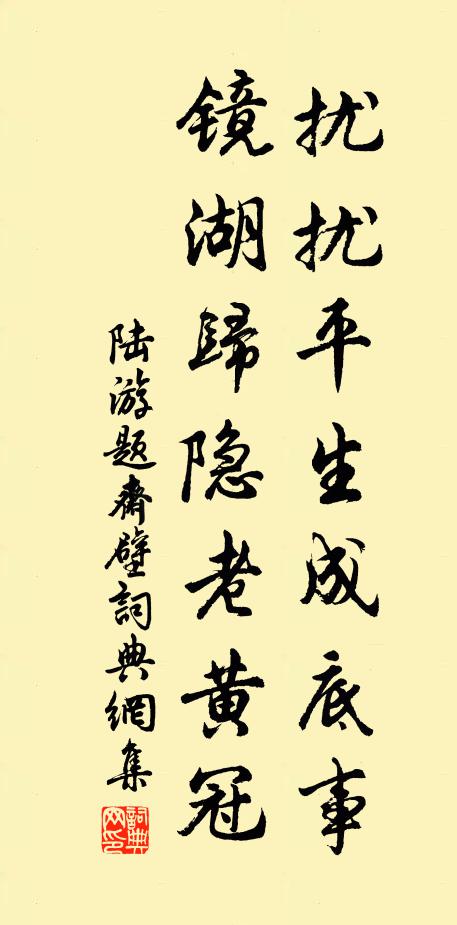 扰扰平生成底事
镜湖歸隐老黄冠
陆游题齋壁詞典網集
詞典网印